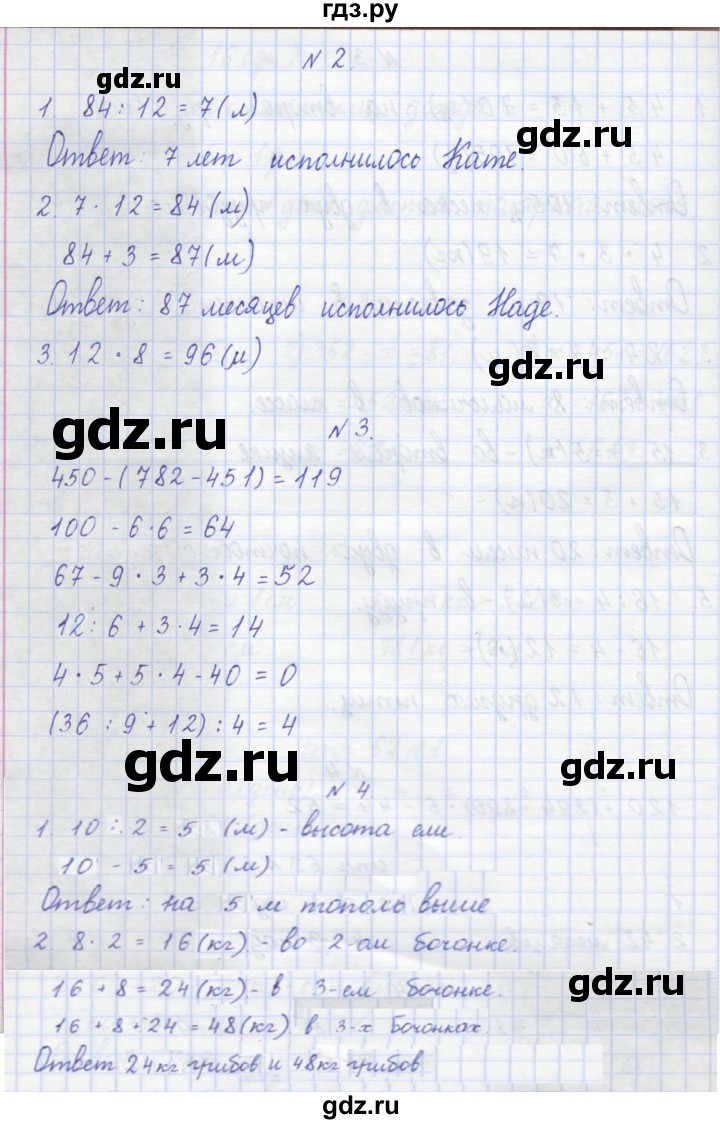 гдз.ру
N 2.
gdz.ru
1. 84 : 12 = 7 (л)
gdz.ru
Ответ: 7 лет исполнилось Кате.
2. 7 · 12 = 84 (м)
gdz.ru
84 + 3 = 87 (м)
Ответ: 87 месяцев исполнилось Наде.
3. 12 · 8 = 96 (м)
gdz.ru
gdz.ru
N 3.
450 - (782 - 451) = 119
100 - 6·6 = 64
gdz.ru
67 - 9 · 3 + 3 · 4 = 52
12 : 6 + 3·4 = 14
4 · 5 + 5 · 4 - 40 = 0
(36 : 9 + 12) : 4 = 4
gdz.ru
gdz.ru
N 4
1. 10 : 2 = 5 (м) - высота ели.
10 - 5 = 5 (м)
Ответ: на 5 м тополь выше
2. 8 · 2 = 16 (кг) - во 2-ом бочонке.
16 + 8 = 24 (кг) - в 3-ем бочонке.
gdz.ru
16 + 8 + 24 = 48 (кг) в 3-х Бочонках.
Ответ 24кг грибов и 48кг грибов
gdz.ru